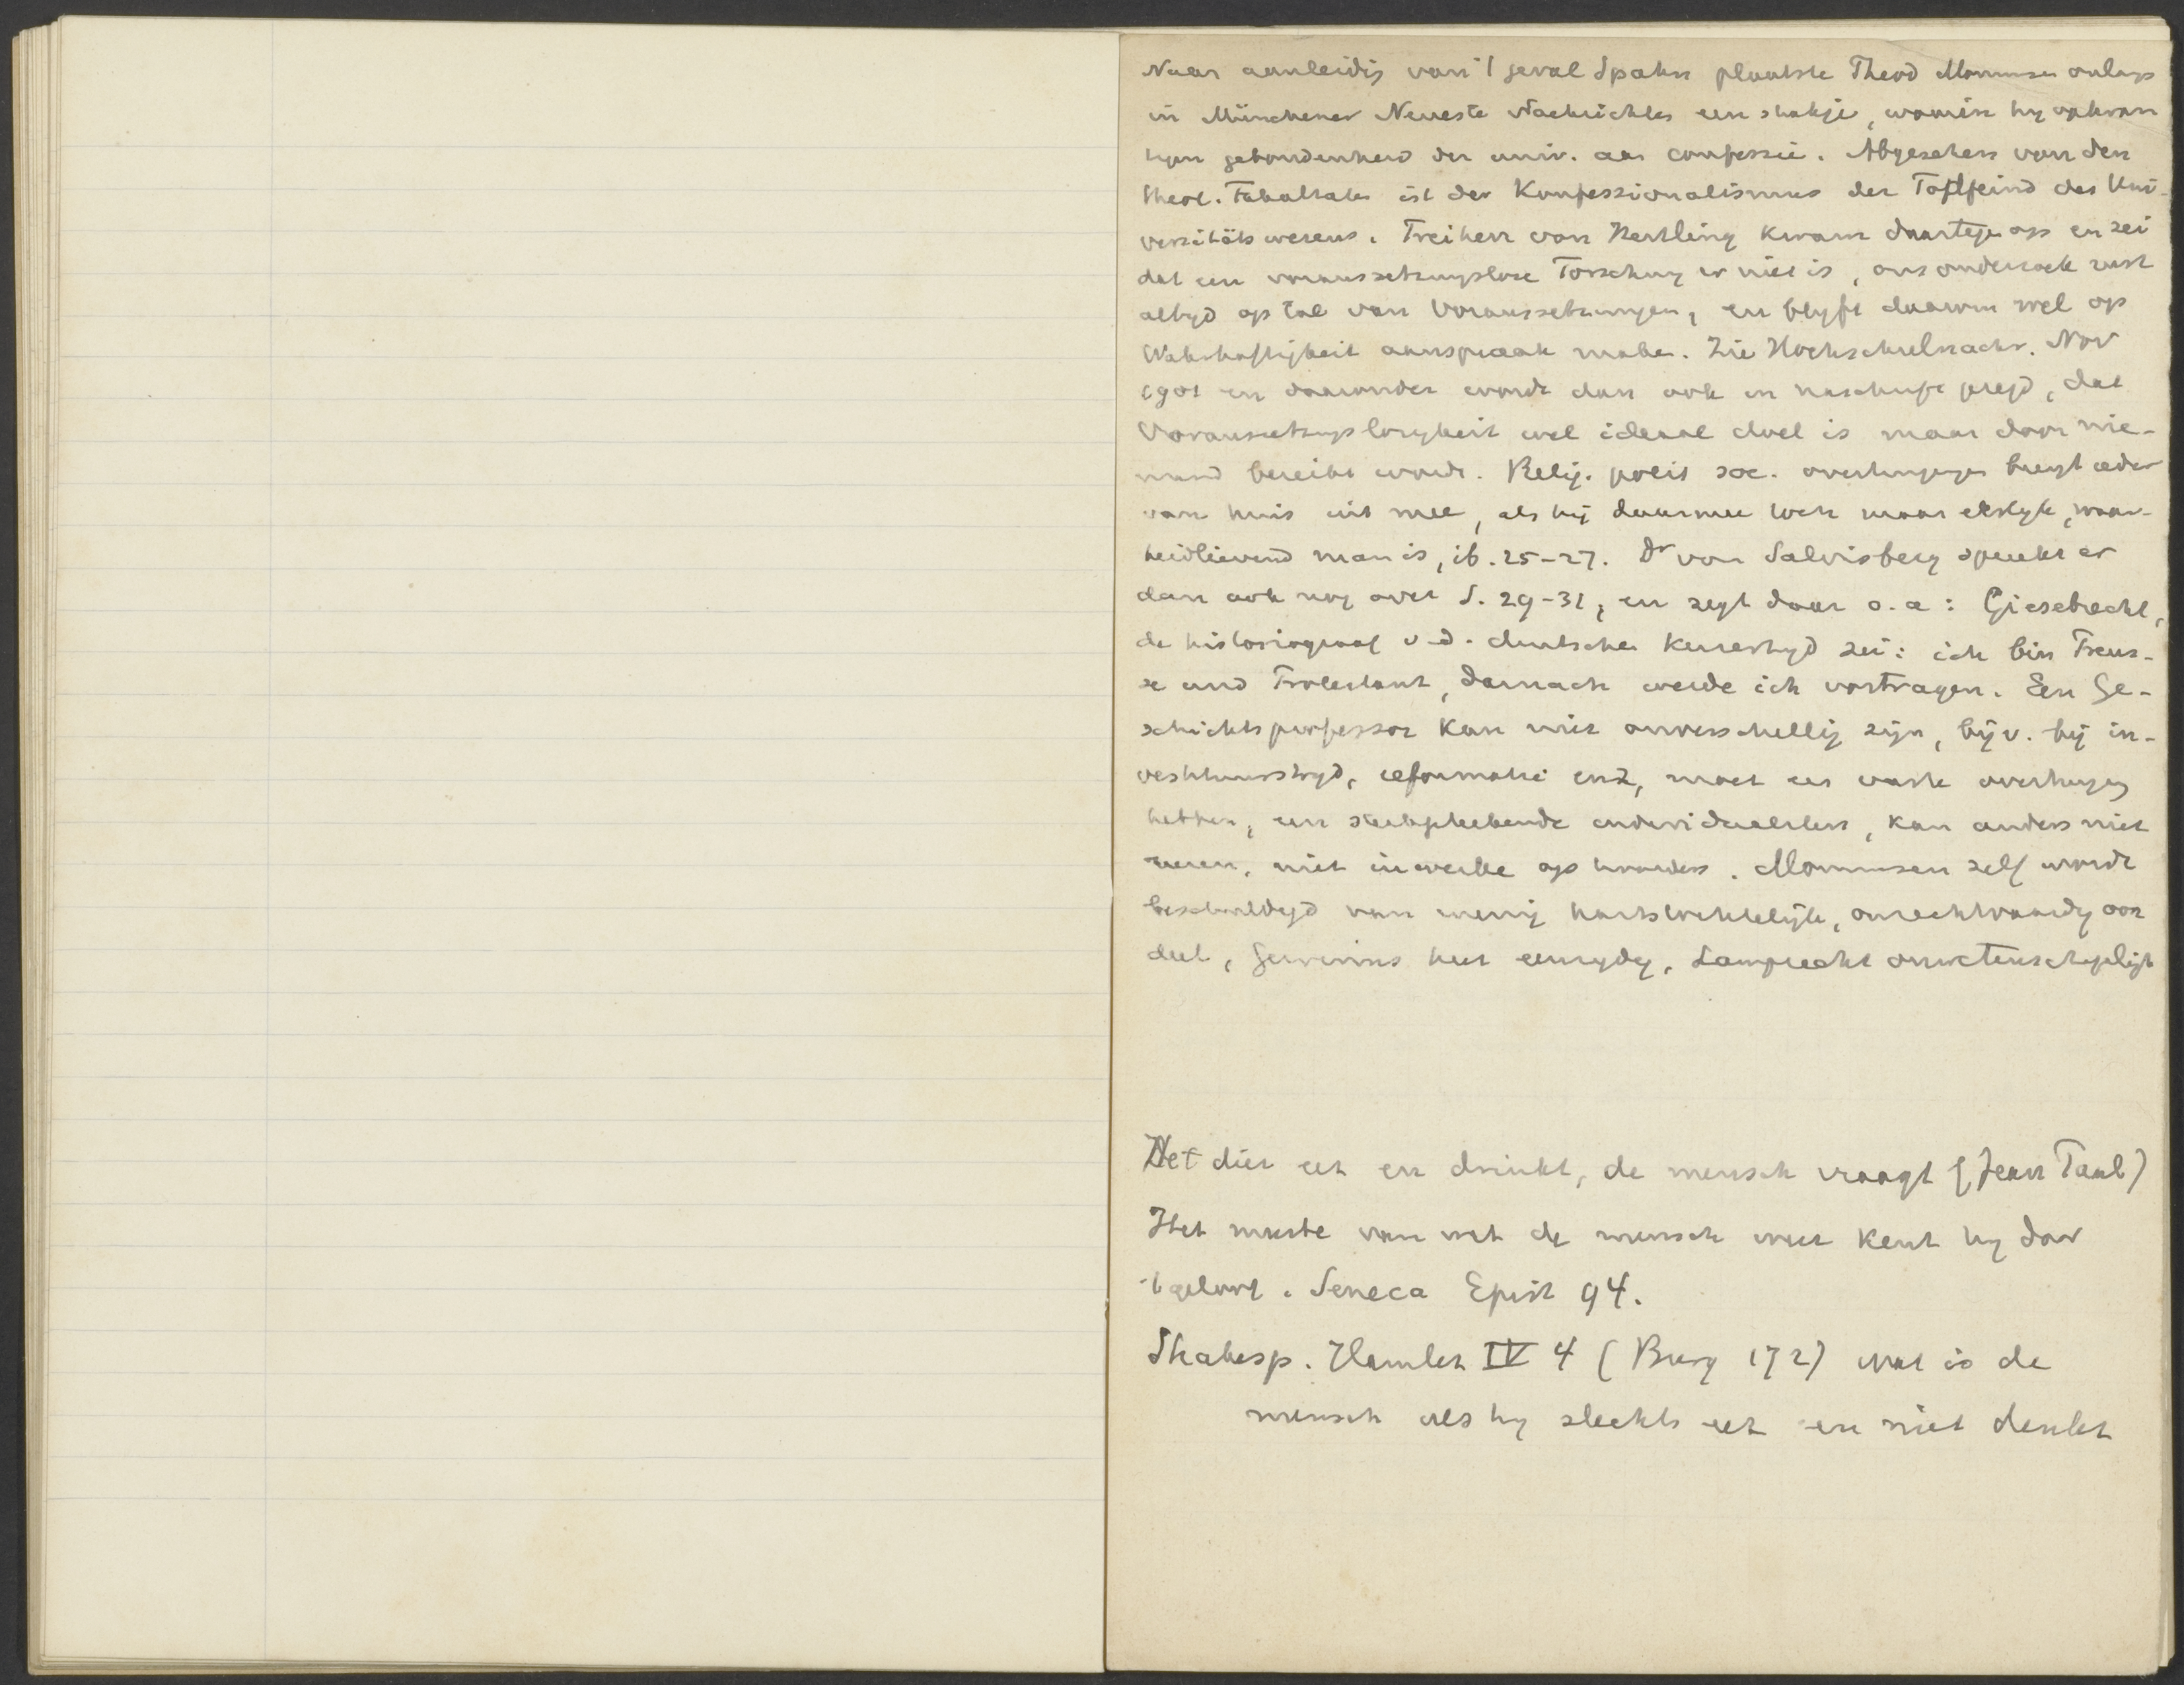 Naar aanleidig van 't geval Spahn plaatste Theod Mommsen onlags
in Münchener Neueste Nachrichten een stukje, waarin hy opkwam
tegen gebondenheid der univ. aan confessie. Abgesehen von den
theol. Fakultäten ist der Konfessionalismus der Todfeind des Uni-
versitätswesens. Freiherr von Hertling kwam daartegen op en zei
dat een voraussetzungslose Forschung er niet is, ons onderzoek rust
altyd op tal van Voraussetzungen, en blyft daarom wel op
Wahrhaftigkeit aanspraak maken. Zie Hochschulnachr. Nov
1901 en daaronder wordt dan ook in naschrift gezegd, dat
Voraussetzungslosigkeit wel ideaal doel is maar door nie-
mand bereikt wordt. Relig. polit soc. overtuigingen brengt ieder
van huis uit mee, als hij daarmee toch maar eerlyk, waar-
heidlievend man is, ib. 25-27. Dr von Salvisberg spreekt er
dan ook nog over S. 29-31, en zegt daar o.a: Giesebrecht,
de historiograaf v.d. deutschen Keizertyd zei: ich bin Preus-
se und Protestant, darnach werde ich vortragen. Een Ge-
schichtsprofessor kan niet onverschillig zijn, bijv. bij in-
vestituurstryd, reformatie enz, moet een vaste overtuiging
hebben, een scherpe individualiteit, kan anders niet
, niet inwerken op hoorders. Mommsen zelf wordt
beschuldigd van menig hartstochtelijk, onrechtvaardig oor
deel, Gervinus heet eenzydig, Lamprecht onwetenschappelijk
Het dier eet en drinkt, de mensch vraagt (Jean Paul)
Het meeste van wat de mensch weet kent hy door
't geloof. Seneca Epist 94.
Shakesp. Hamlet IV 4 (Burg 172) wat is de
mensch als hy slechts eet en niet denkt